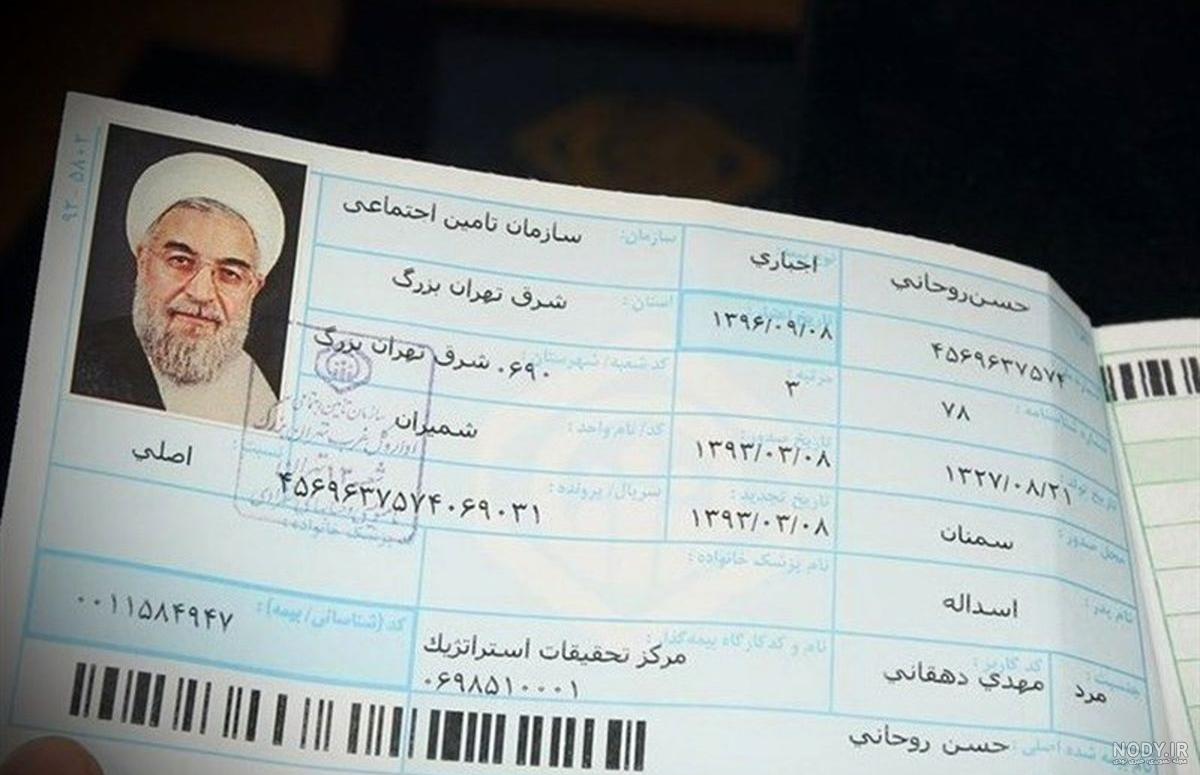 نام: حسن روحاني
اجباري
سازمان: سازمان تامین اجتماعی
۴۵۶۹۶۳۷۵۷۴
۱۳۹۶/۰۹/۰۸
استان: شرق تهران بزرگ
شماره شناسنامه: ۷۸
مرتبه: ۳
کد شعبه/ شهرستان: ۰۶۹۰ شرق تهران بزرگ
تاریخ تولد: ۱۳۲۷/۰۸/۲۱
تاریخ صدور: ۱۳۹۳/۰۳/۰۸
کد/ نام واحد: شمیران
محل صدور: سمنان
تاریخ تجدید: ۱۳۹۳/۰۳/۰۸
سریال/ پرونده: ۴۵۶۹۶۳۷۵۷۴۰۶۹۰۳۱
نسبت: اصلي
نام پدر: اسداله
نام پزشک خانواده:
جنسیت: مرد
کد کاربر: مهدي دهقاني
نام و کدکارگاه بیمه‌گذار: مرکز تحقیقات استراتژیك
۰۶۹۸۵۱۰۰۰۱
کد (شناسائی/ بیمه): ۰۰۱۱۵۸۴۹۴۷
شده اصلی: حسن روحاني
سازمان تامین اجتماعی
اداره کل غرب تهران بزرگ
۹۲ ۵۸۰۲
NODY.IR